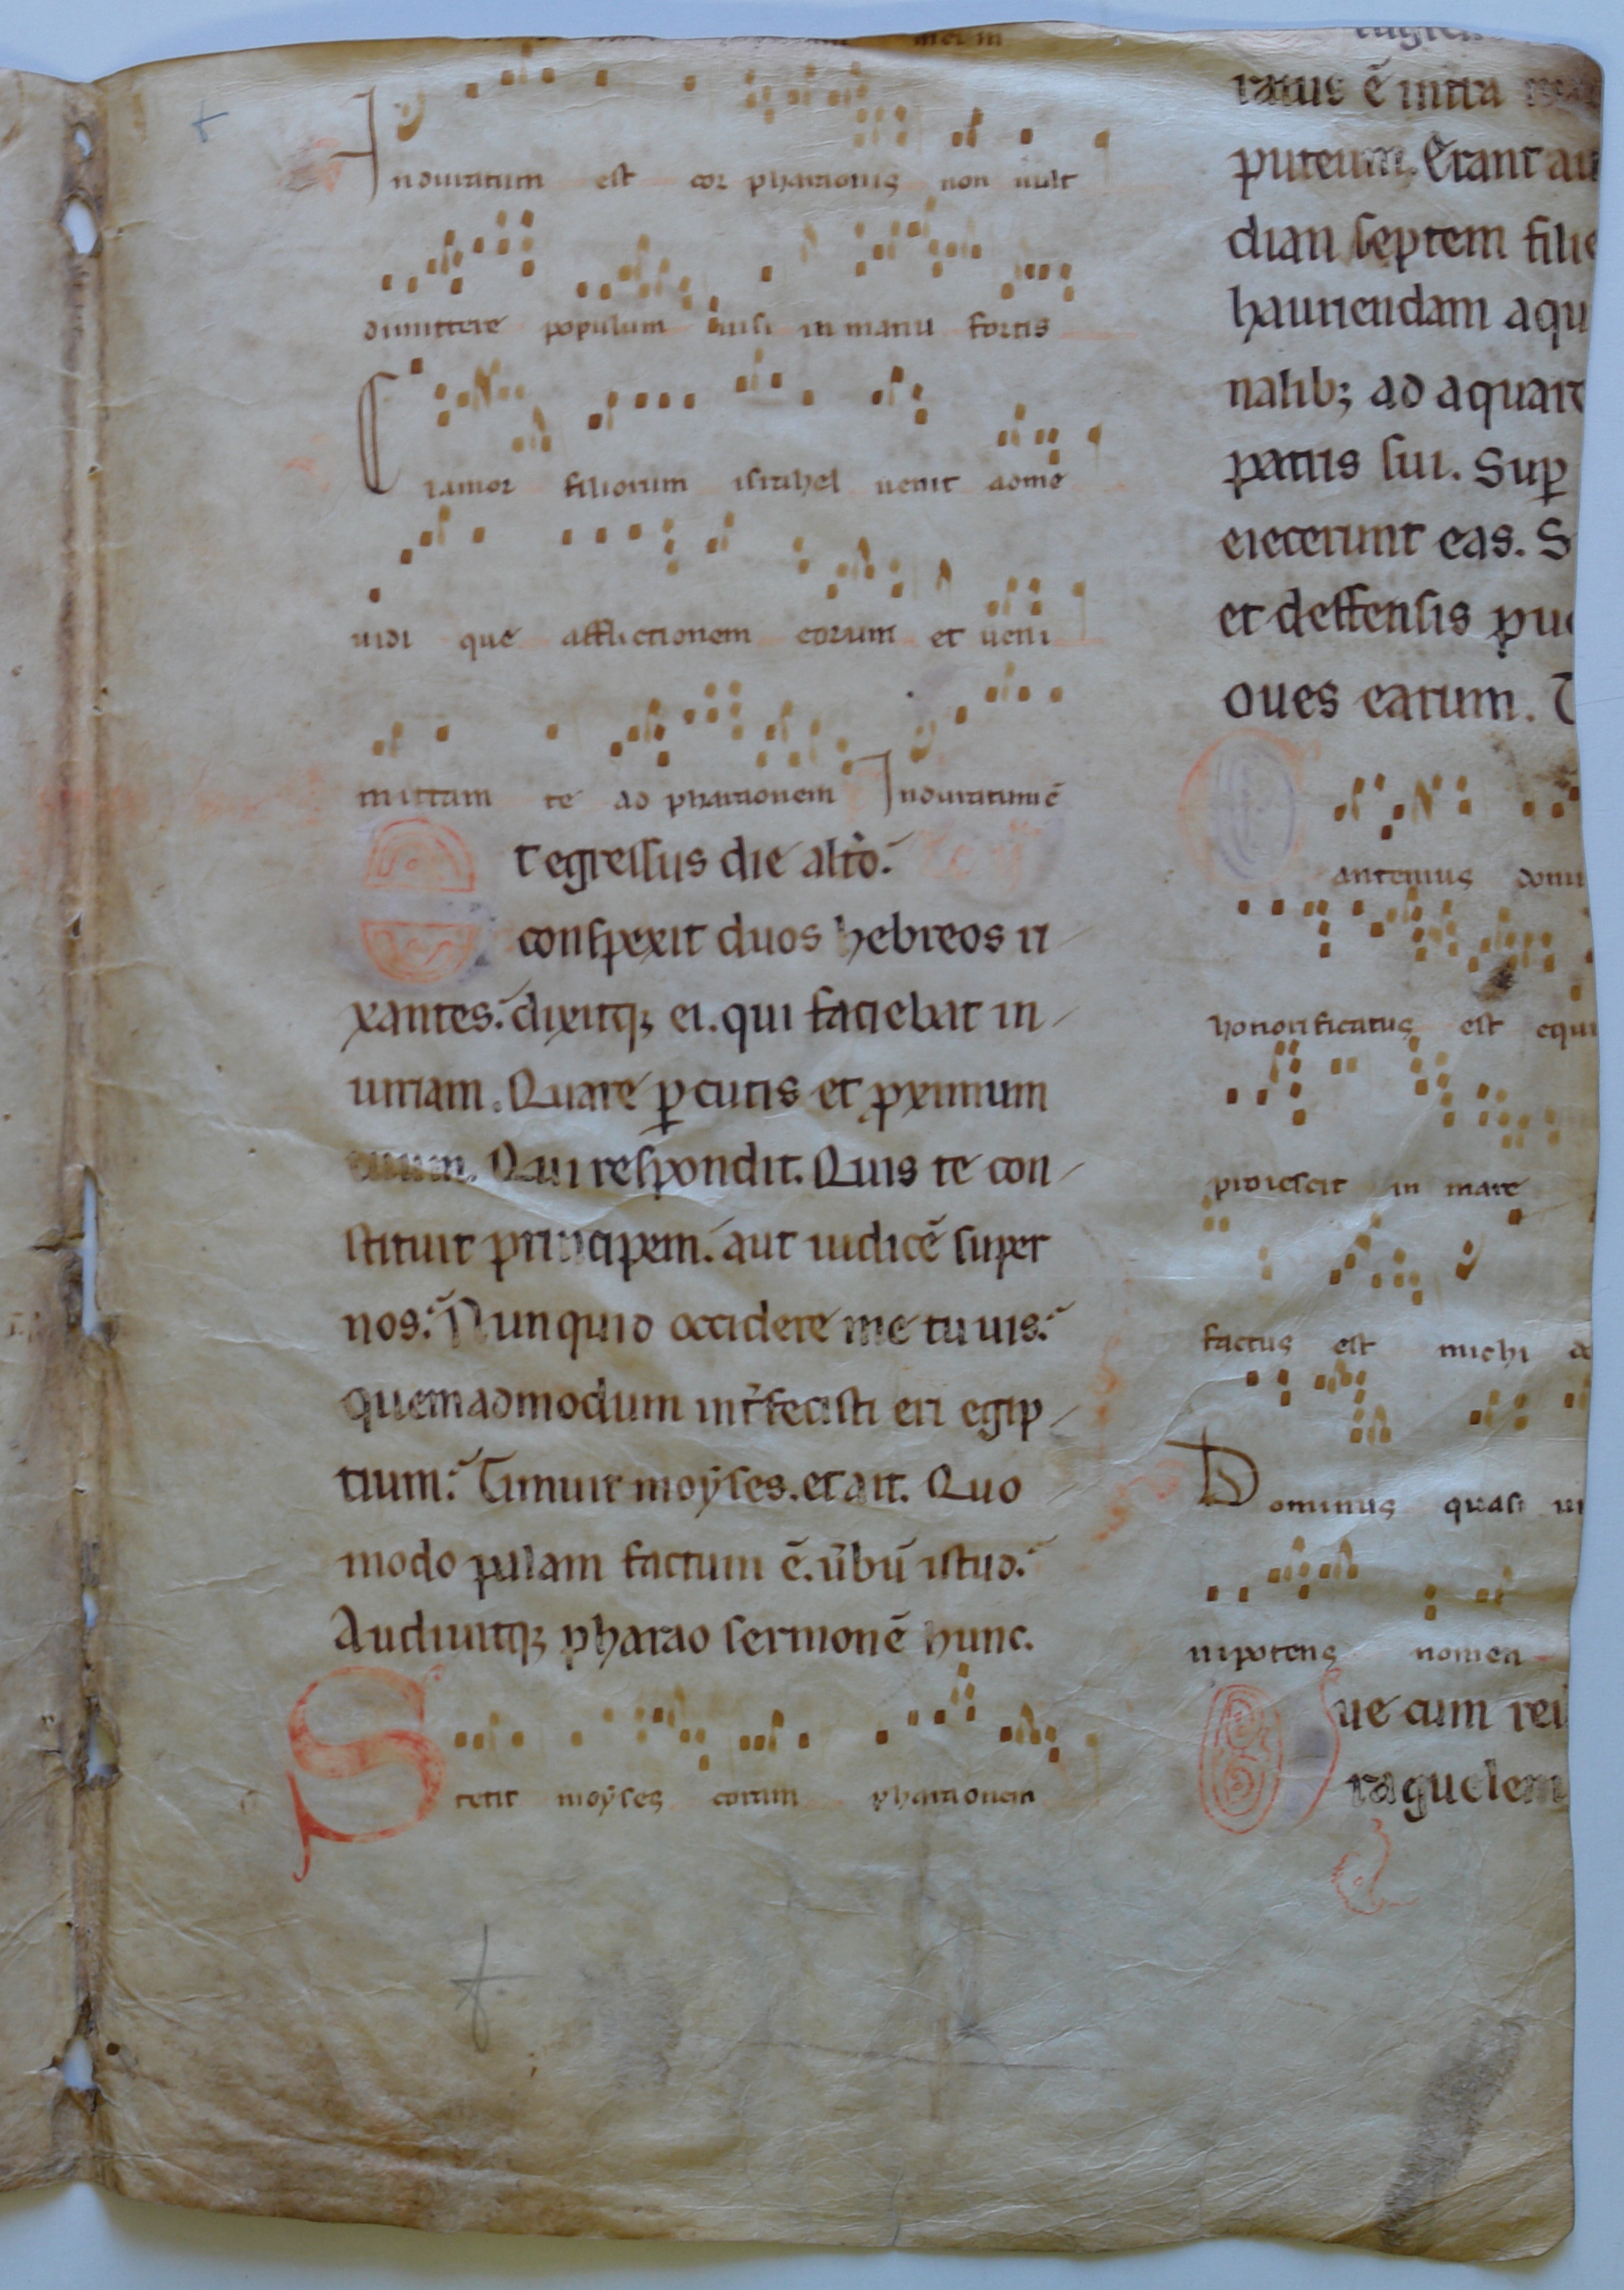 mei in
Induratum est cor pharaonis non uult
dimittere populum nisi in manu fortis
Clamor filiorum israhel uenit ad me
uidi que afflictionem eorum et ueni
mittam te ad pharaonem Induratum ē
Et egressus die alto.
conspexit duos hebreos ri
xantes. dixitq; ei. qui faciebat in
iuriam. Quare ꝑcutis et ꝓximum
tuum. Qui respondit. Quis te con
stituit principem. aut iudicē super
nos. Nunquid occidere me tu uis.
quemadmodum int̄fecisti eri egip
tium. Timuit moÿses. et ait. Quo
modo palam factum ē. ūbū istud.
Audiuitq; pharao sermonē hunc.
Stetit moÿses coram pharaonem
ratus ē in tra
puteum. Erant au
dian septem filie
hauriendam aqu
nalib; ad aquare
patris sui. Suꝑ
eiecerunt eas. S
et deffensis pue
oues earum. T
Cantemus domi
honorificatus est equu
proiescit in mare
factus est michi
Dominus quasi ui
nipotens nomen
Que cum reu
raguelem